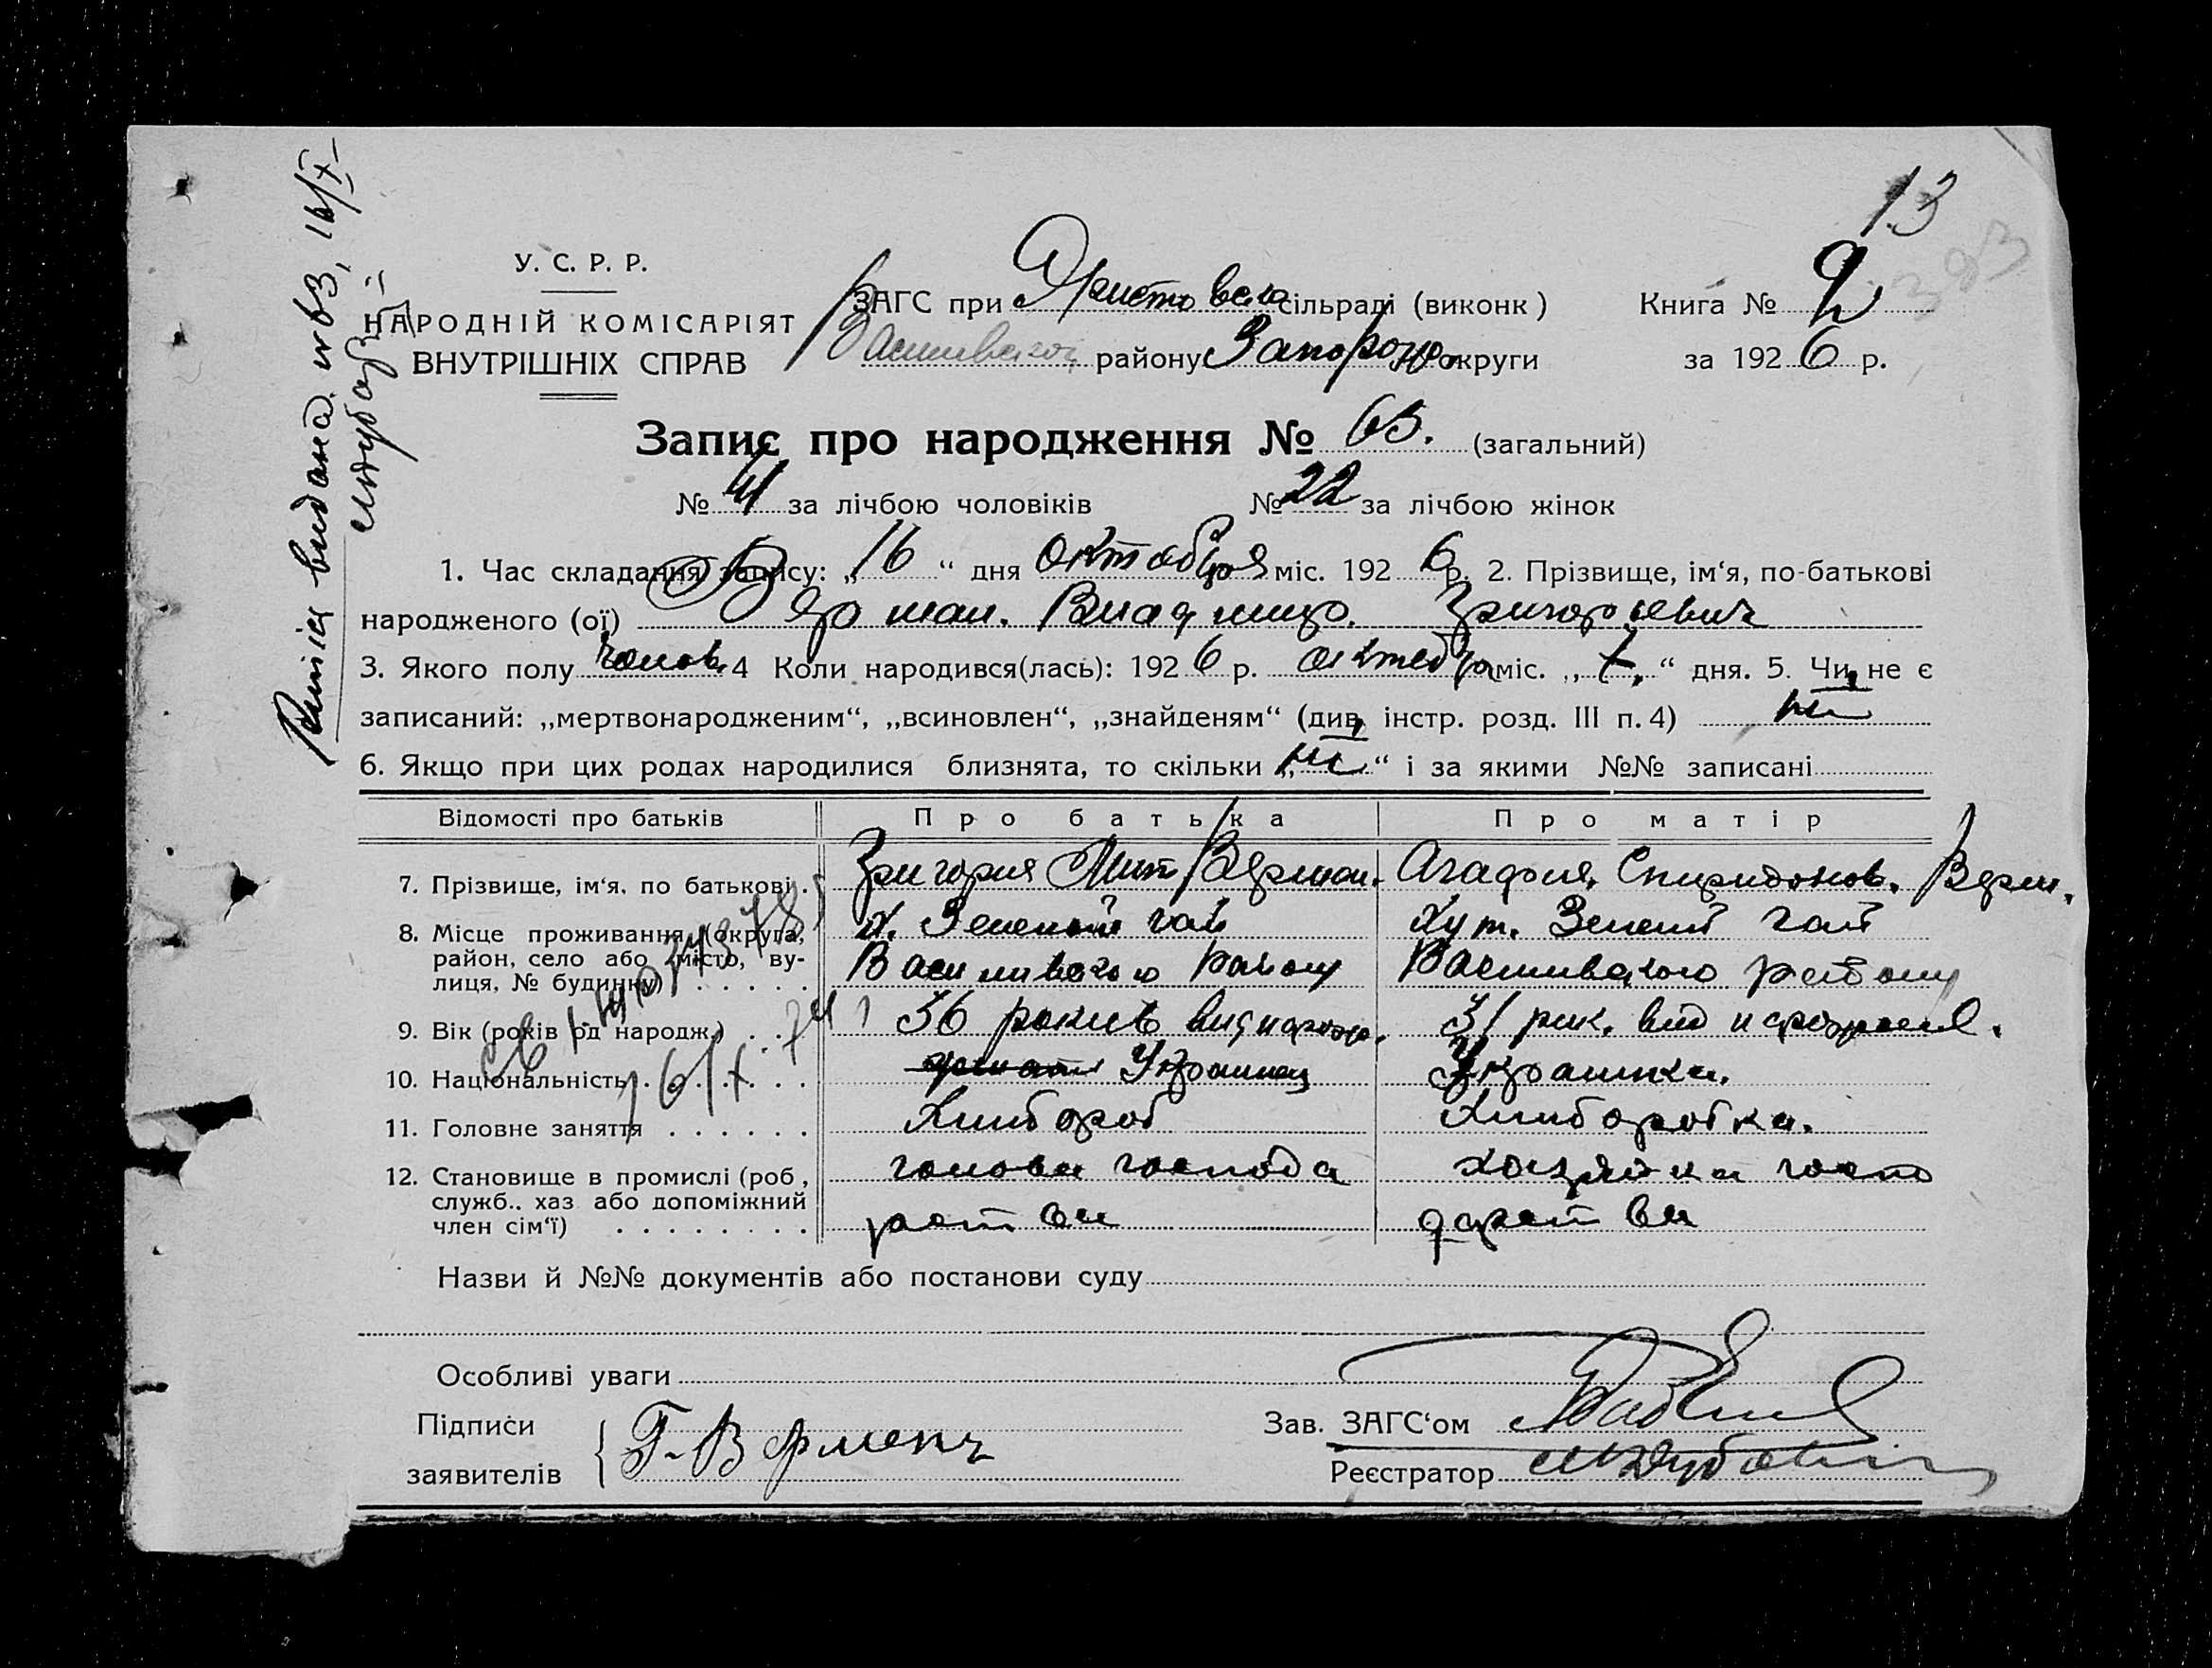 13
У. С. Р. Р.
НАРОДНІЙ КОМІСАРІЯТ
ВНУТРІШНІХ СПРАВ
ЗАГС при сільраді (виконк)
району Запорож округи
Книга № 2
за 1926 р.
Запис про народження № 63. (загальний)
№ 41 за лічбою чоловіків № 22 за лічбою жінок
1. Час складання запису: „16“ дня октября міс. 1926 р. 2. Прізвище, ім‘я, по-батькові
народженого (ої) Владимир. Григориевич
3. Якого полу чолов. 4 Коли народився(лась): 1926 р. октебря міс. „ “ дня. 5. Чи не є
записаний: „мертвонародженим“, „всиновлен“, „знайденям“ (див, інстр. розд. III п. 4) ні
6. Якщо при цих родах народилися близнята, то скільки „ні“ і за якими №№ записані
Відомості про батьків Про батька Про матір
7. Прізвище, ім‘я, по батькові . Григория Агафия Спиридонов.
8. Місце проживання (округа, район, село або місто, ву-лиця, № будинку)
х. Зелений гай
Василивского району
Хут. Зелений гай
Василивского району
9. Вік (років од народж.) 36 рокив 31 рик. вид
10. Національність Украинец Украинка.
11. Головне заняття Хлибороб Хлиборобка.
12. Становище в промислі (роб, служб.. хаз або допоміжний член сім‘ї)
голова господа
рства
хазяйка госпо
дарства
Назви й №№ документів або постанови суду
Особливі уваги
Підписи
заявителів
Зав. ЗАГС‘ом
Реєстратор
видана № 63, 16/X
16/X